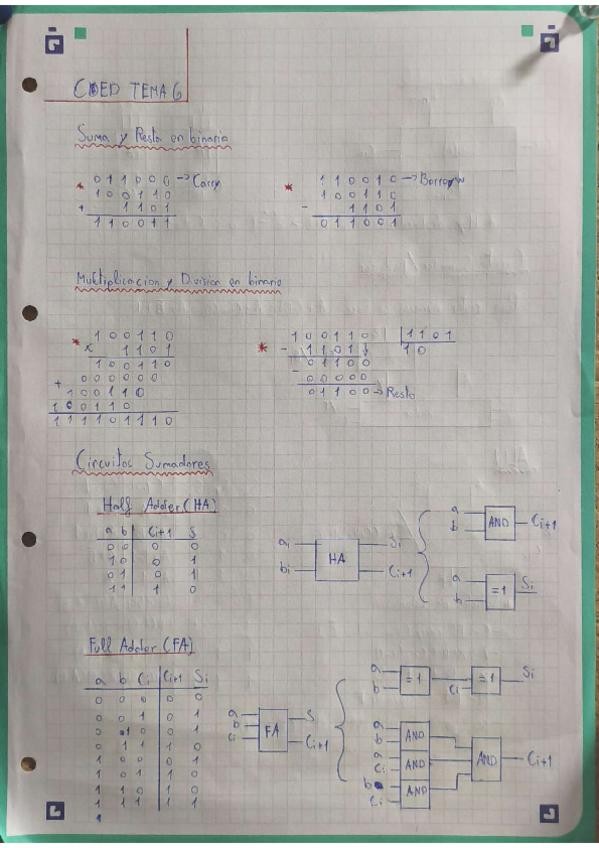 COED TEMA 6
Suma y Resta en binario
* 0 1 1 0 0 0 → Carry
1 0 0 1 1 0
+ 1 1 0 1
1 1 0 0 1 1
* 1 1 0 0 1 0 → Borrow
1 0 0 1 1 0
- 1 1 0 1
0 1 1 0 0 1
Multiplicacion y Division en binario
* 1 0 0 1 1 0
x 1 1 0 1
1 0 0 1 1 0
+ 0 0 0 0 0 0
1 0 0 1 1 0
1 0 0 1 1 0
1 1 1 1 0 1 1 1 0
* 1 0 0 1 1 0 | 1 1 0 1
- 1 1 0 1 ↓ 1 0
0 1 1 0 0
- 0 0 0 0 0
0 1 1 0 0 → Resto
Circuitos Sumadores
Half Adder (HA)
a b Ci+1 S
0 0 0 0
1 0 0 1
0 1 0 1
1 1 1 0
ai bi HA Si Ci+1
a b AND Ci+1
a b =1 Si
Full Adder (FA)
a b Ci Ci+1 Si
0 0 0 0 0
0 0 1 0 1
0 1 0 0 1
0 1 1 1 0
1 0 0 0 1
1 0 1 1 0
1 1 0 1 0
1 1 1 1 1
a b Ci FA S Ci+1
a b =1 Ci =1 Si
a b AND
a Ci AND AND Ci+1
b Ci AND